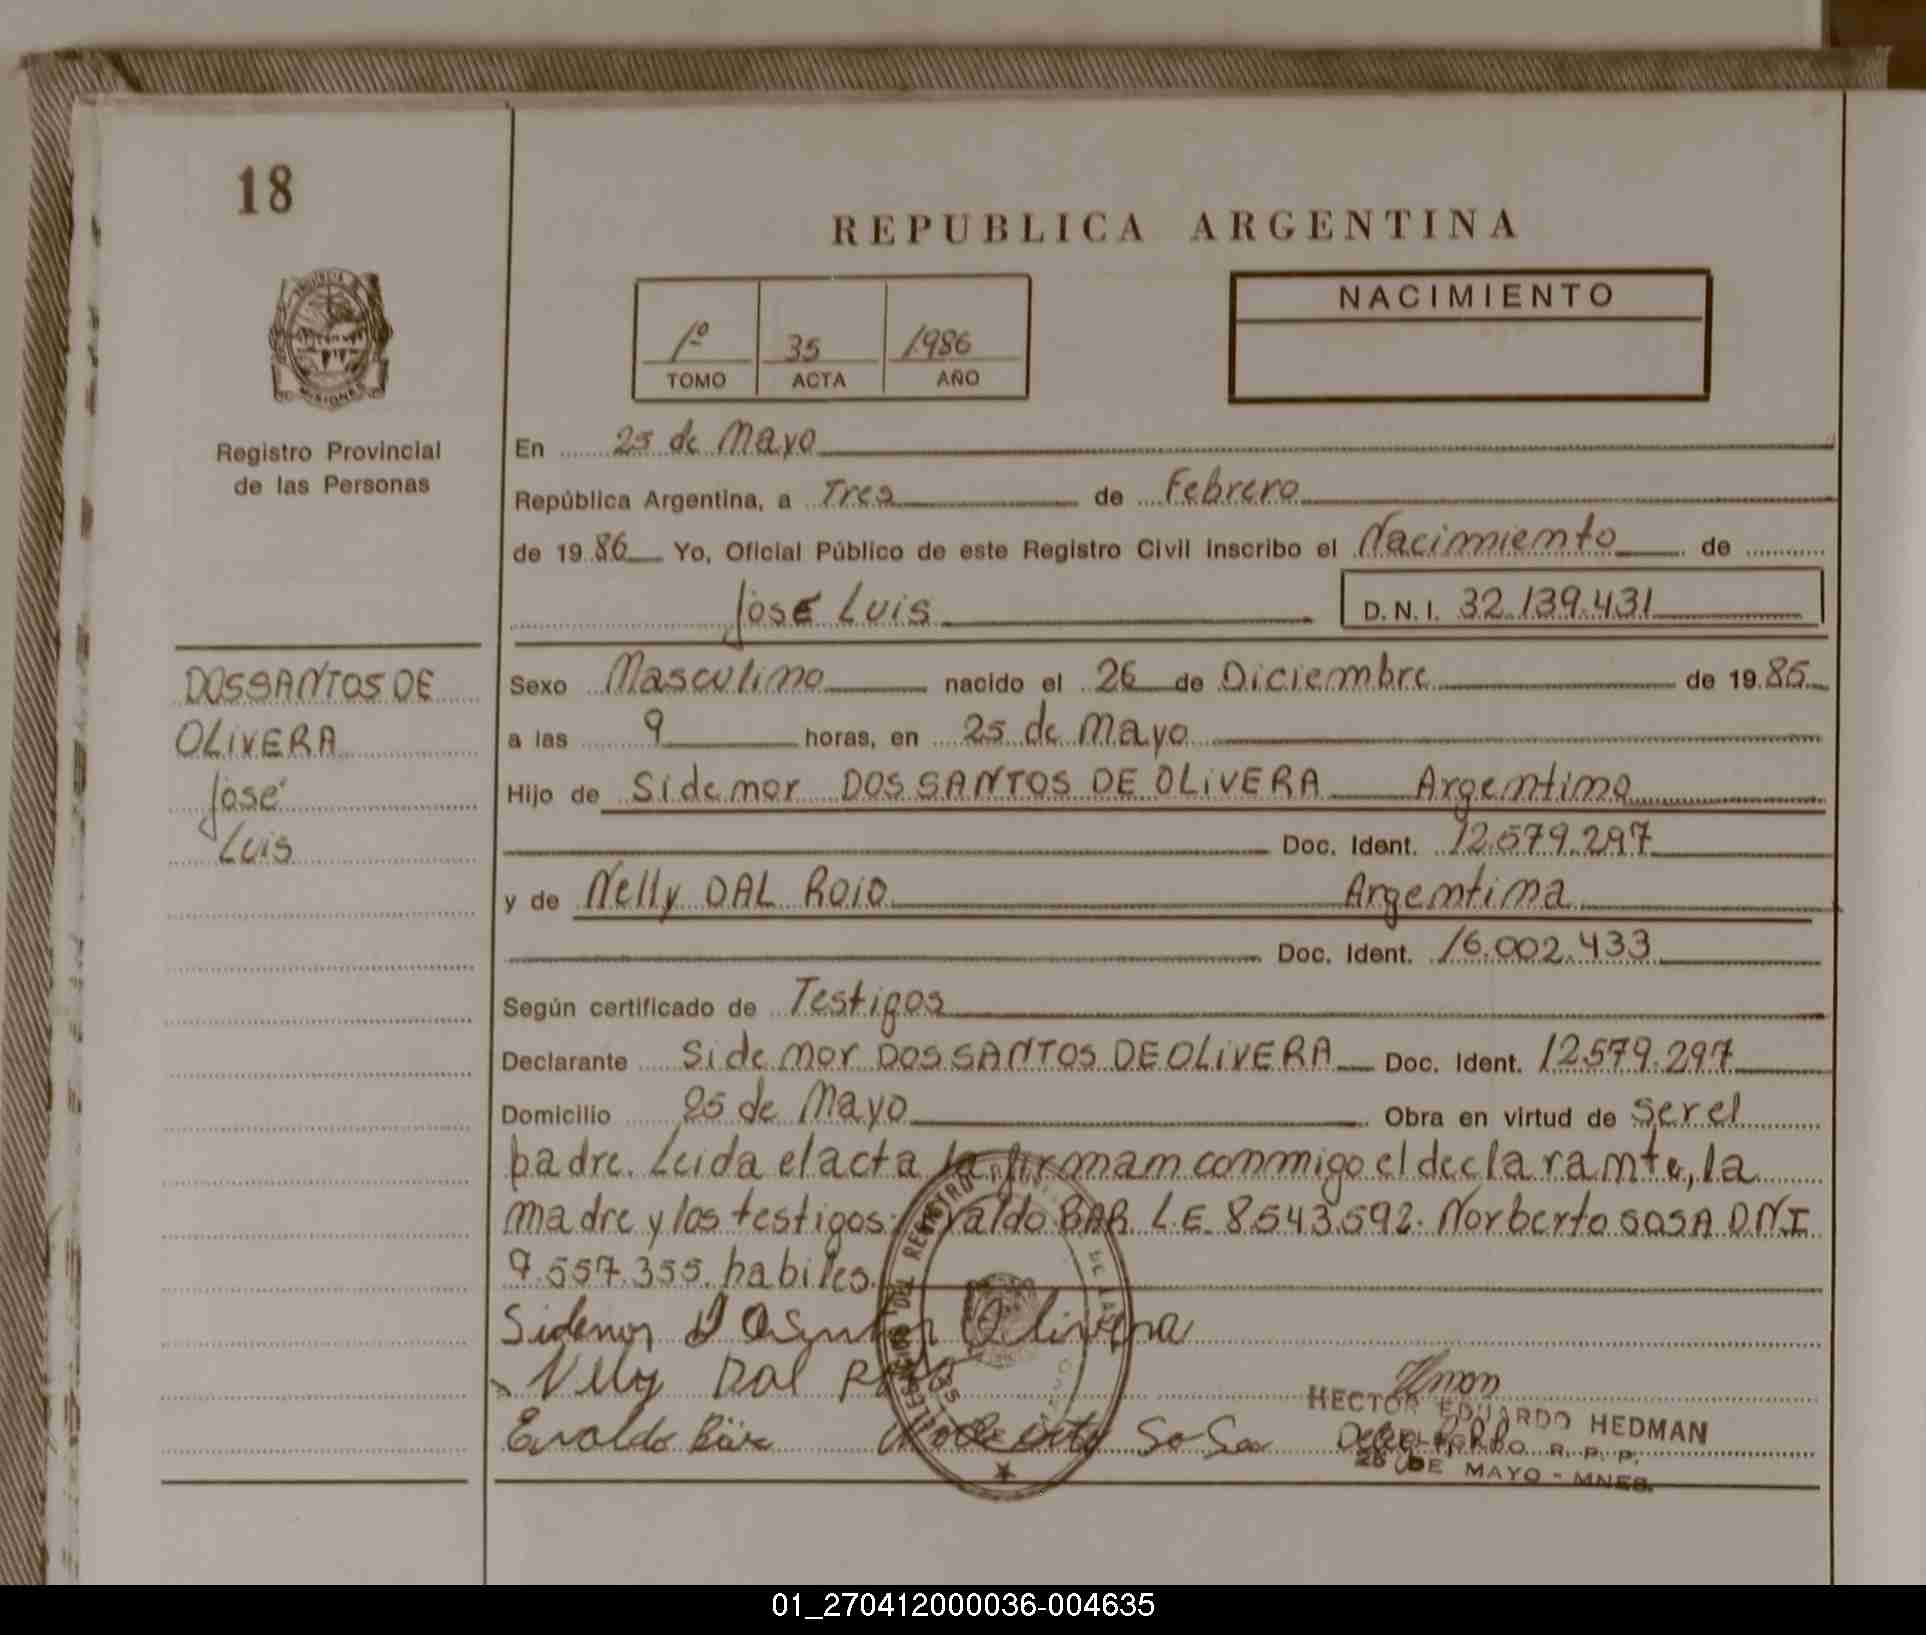 18
REPUBLICA ARGENTINA
1º 35 1986
TOMO ACTA AÑO
NACIMIENTO
Registro Provincial
de las Personas
En 25 de Mayo
República Argentina, a Tres de Febrero
de 1986 Yo, Oficial Público de este Registro Civil inscribo el Nacimiento de
José Luis D.N.I. 32.139.431
DOS SANTOS DE
OLIVERA
José
Luis
Sexo Masculino nacido el 26 de Diciembre de 1985
a las 9 horas, en 25 de Mayo
Hijo de Sidemor DOS SANTOS DE OLIVERA Argentino
Doc. Ident. 12.579.297
y de Nelly DAL ROIO Argentina
Doc. Ident. 16.002.433
Según certificado de Testigos
Declarante Sidemor DOS SANTOS DE OLIVERA Doc. Ident. 12.579.297
Domicilio 25 de Mayo Obra en virtud de ser el
padre. Leida el acta la firman conmigo el declarante, la
madre y los testigos: BAR L.E. 8.543.592. Norberto SOSA D.N.I
9.557.355. habiles.
Sidemor Olivera
Nelly Dal
Evaldo Bär Sosa
HECTOR EDUARDO HEDMAN
R.P.P.
25 DE MAYO - MNES.
01_270412000036-004635